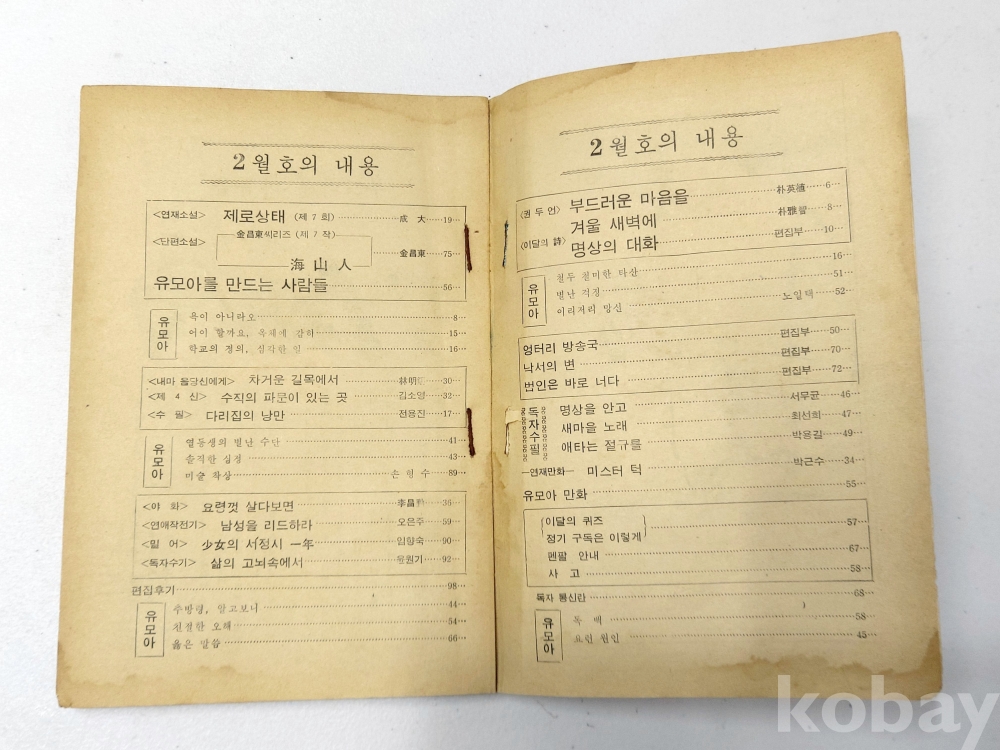 2월호의 내용
<연재소설> 제로상태 (제 7 회) 成大 19
金昌東씨리즈 (제 7 작)
<단편소설> 海山人 金昌東 75
유모아를 만드는 사람들 56
유모아
욕이 아니라오 8
어이 할까요, 옥체에 감히 15
학교의 정의, 심각한 일 16
<내마음당신에게> 차거운 길목에서 林明 30
<제 4 신> 수직의 파문이 있는 곳 김소영 32
<수 필> 다리집의 낭만 전용진 17
유모아
열등생의 별난 수단 41
솔직한 심정 43
미술 착상 손형수 89
<야 화> 요령껏 살다보면 李昌 36
<연애작전기> 남성을 리드하라 오은주 59
<밀 어> 少女의 서정시 一年 임향숙 90
<독자수기> 삶의 고뇌속에서 윤원기 92
편집후기 98
유모아
추방령, 알고보니 44
친절한 오해 54
옳은 말씀 66
2월호의 내용
<권두언> 부드러운 마음을 朴英 6
겨울 새벽에 朴雅 8
<이달의 詩> 명상의 대화 편집부 10
유모아
철두 철미한 타산 16
별난 걱정 51
이리저리 망신 노일택 52
엉터리 방송국 편집부 50
낙서의 변 편집부 70
범인은 바로 너다 편집부 72
독자수필
명상을 안고 서무균 46
새마을 노래 최선희 47
애타는 절규를 박용길 49
—연재만화— 미스터 턱 박근수 34
유모아 만화 55
이달의 퀴즈 57
정기 구독은 이렇게
펜팔 안내 67
사 고 58
독자 통신란 68
유모아
독 백 58
요런 원인 45
kobay